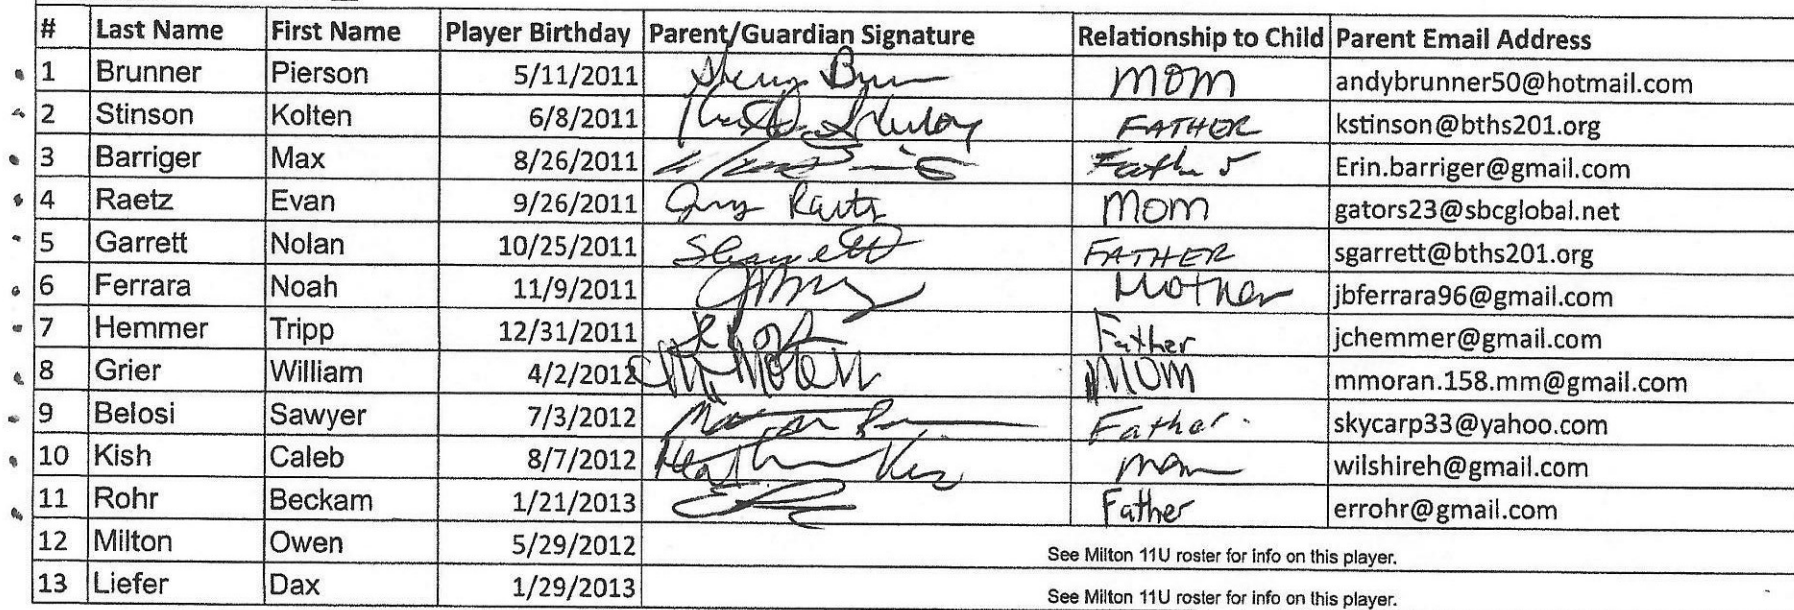 # Last Name First Name Player Birthday Parent/Guardian Signature Relationship to Child Parent Email Address
1 Brunner Pierson 5/11/2011 Mom andybrunner50@hotmail.com
2 Stinson Kolten 6/8/2011 FATHER kstinson@bths201.org
3 Barriger Max 8/26/2011 Father Erin.barriger@gmail.com
4 Raetz Evan 9/26/2011 Raetz Mom gators23@sbcglobal.net
5 Garrett Nolan 10/25/2011 SGarrett FATHER sgarrett@bths201.org
6 Ferrara Noah 11/9/2011 Mother jbferrara96@gmail.com
7 Hemmer Tripp 12/31/2011 Father jchemmer@gmail.com
8 Grier William 4/2/2012 Mom mmoran.158.mm@gmail.com
9 Belosi Sawyer 7/3/2012 Father skycarp33@yahoo.com
10 Kish Caleb 8/7/2012 Heather Kish mom wilshireh@gmail.com
11 Rohr Beckam 1/21/2013 Father errohr@gmail.com
12 Milton Owen 5/29/2012 See Milton 11U roster for info on this player.
13 Liefer Dax 1/29/2013 See Milton 11U roster for info on this player.